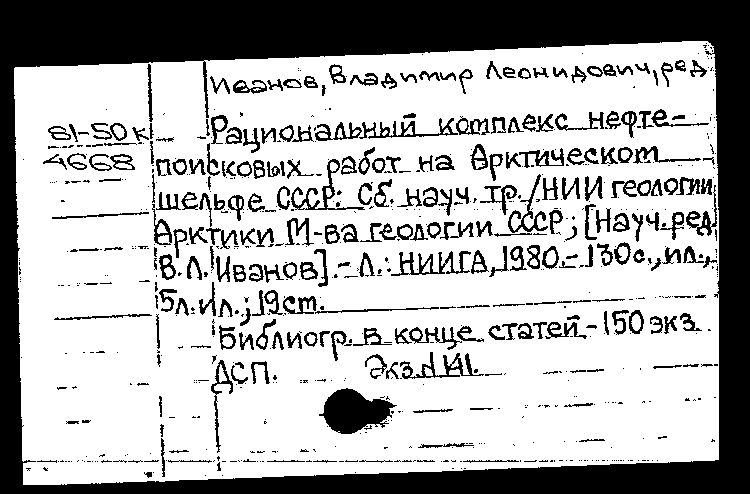 Иванов, Владимир Леонидович, ред.
81-50к Рациональный комплекс нефте-
4668 поисковых работ на Арктическом
шельфе СССР: Сб. науч. тр./НИИ геологии
Арктики М-ва геологии СССР; [Науч. ред.
В.Л. Иванов]. - Л.: НИИГА, 1980. - 130с., ил.,
5л. ил.; 19 ст.
Библиогр. в конце статей - 150 экз.
ДСП. Экз. N 141.